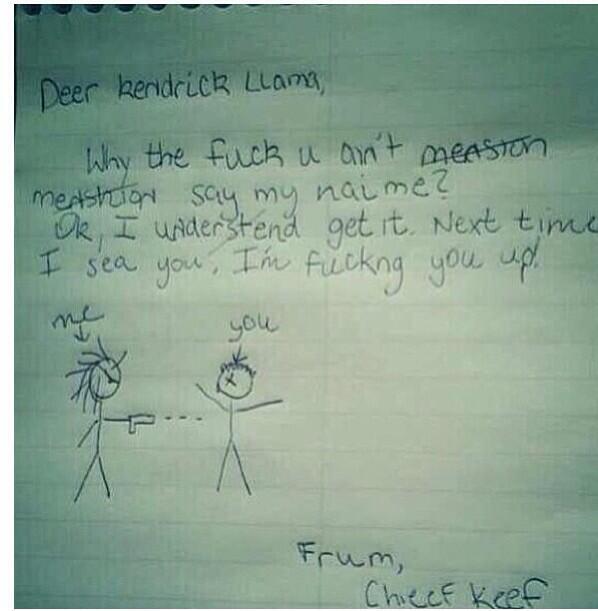 Deer kendrick Llama,
Why the fuck u ain't measton
meashtion say my naime?
Ok, I understend get it. Next time
I sea you, I'm fuckng you up!
me
you
Frum,
Chieef Keef